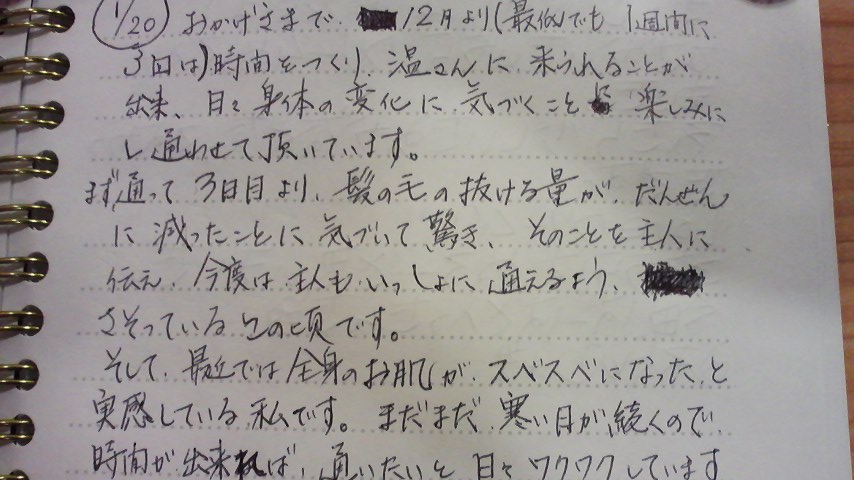 1/20 おかげさまで、12月より(最低でも1週間に
3日は)時間をつくり、温さんに来られることが
出来、日々身体の変化に気づくことを楽しみに
し通わせて頂いています。
まず通って3日目より、髪の毛の抜ける量が、だんぜん
に減ったことに気づいて驚き、そのことを主人に
伝え、今度は主人もいっしょに通えるよう、
さそっているこの頃です。
そして、最近では全身のお肌が、スベスベになったと
実感している私です。まだまだ寒い日が、続くので、
時間が出来れば、通いたいと日々ワクワクしています